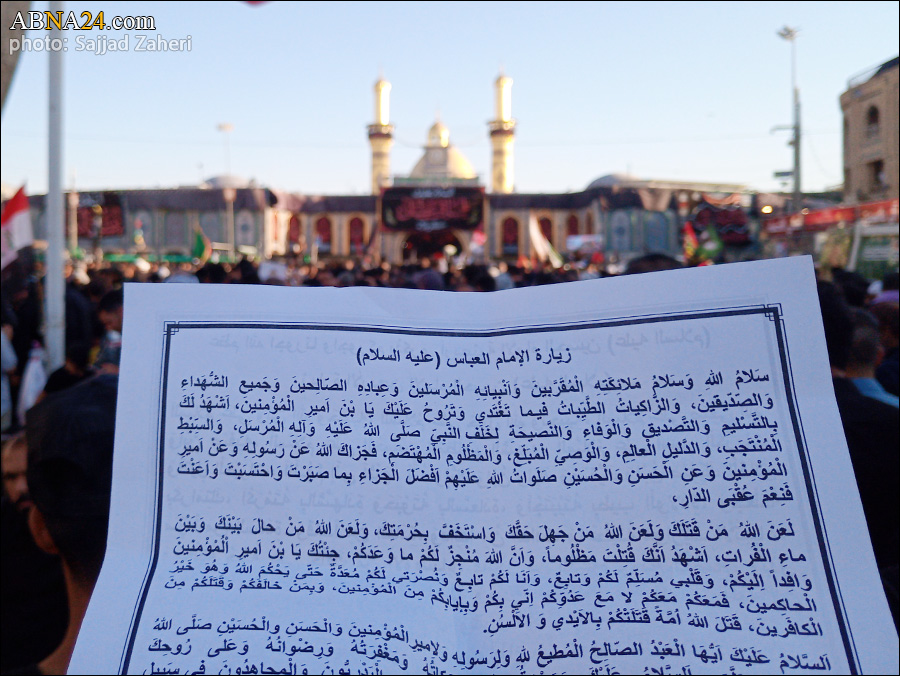 ABNA24.com
photo: Sajjad Zaheri
زيارة الإمام العباس (عليه السلام)
سَلامُ اللهِ وَسَلامُ مَلائِكَتِهِ الْمُقَرَّبينَ وَاَنْبِيائِهِ الْمُرْسَلينَ وَعِبادِهِ الصّالِحينَ وَجَميعِ الشُّهَداءِ
وَالصِّدّيقينَ، وَالزَّاكِياتُ الطَّيِّباتُ فيما تَغْتَدي وَتَرُوحُ عَلَيْكَ يَا بْنَ اَميرِ الْمُؤْمِنينَ، اَشْهَدُ لَكَ
بِالتَّسْليمِ وَالتَّصْديقِ وَالْوَفاءِ وَالنَّصيحَةِ لِخَلَفِ النَّبِيِّ صَلَّى اللهُ عَلَيْهِ وَآلِهِ الْمُرْسَلِ، وَالسِّبْطِ
الْمُنْتَجَبِ، وَالدَّليلِ الْعالِمِ، وَالْوَصِيِّ الْمُبَلِّغِ، وَالْمَظْلُومِ الْمُهْتَضَمِ، فَجَزاكَ اللهُ عَنْ رَسُولِهِ وَعَنْ اَميرِ
الْمُؤْمِنينَ وَعَنِ الْحَسَنِ وَالْحُسَيْنِ صَلَواتُ اللهِ عَلَيْهِمْ اَفْضَلَ الْجَزاءِ بِما صَبَرْتَ وَاحْتَسَبْتَ وَاَعَنْتَ
فَنِعْمَ عُقْبَى الدّارِ،
لَعَنَ اللهُ مَنْ قَتَلَكَ وَلَعَنَ اللهُ مَنْ جَهِلَ حَقَّكَ وَاسْتَخَفَّ بِحُرْمَتِكَ، وَلَعَنَ اللهُ مَنْ حالَ بَيْنَكَ وَبَيْنَ
ماءِ الْفُراتِ، اَشْهَدُ اَنَّكَ قُتِلْتَ مَظْلُوماً، وَاَنَّ اللهَ مُنْجِزٌ لَكُمْ ما وَعَدَكُمْ، جِئْتُكَ يَا بْنَ اَميرِ الْمُؤْمِنينَ
وَافِداً اِلَيْكُمْ، وَقَلْبي مُسَلِّمٌ لَكُمْ وَتابِعٌ، وَاَنَا لَكُمْ تابِعٌ وَنُصْرَتي لَكُمْ مُعَدَّةٌ حَتّى يَحْكُمَ اللهُ وَهُوَ خَيْرُ
الْحاكِمينَ، فَمَعَكُمْ مَعَكُمْ لا مَعَ عَدُوِّكُمْ اِنّي بِكُمْ وَبِاِيابِكُمْ مِنَ الْمُؤْمِنينَ، وَبِمَنْ خالَفَكُمْ وَقَتَلَكُمْ مِنَ
الْكافِرينَ، قَتَلَ اللهُ اُمَّةً قَتَلَتْكُمْ بِالْاَيْدي وَ الْاَلْسُنِ.
اَلسَّلامُ عَلَيْكَ اَيُّهَا الْعَبْدُ الصّالِحُ الْمُطيعُ للهِ وَلِرَسُولِهِ وَلاَميرِ الْمُؤْمِنينَ وَالْحَسَنِ والْحُسَيْنِ صَلَّى اللهُ
وَمَغْفِرَتُهُ وَرِضْوانُهُ وَعَلى رُوحِكَ
الْبَدْرِيُّونَ وَالْمجاهِدُونَ في سَبيلِ